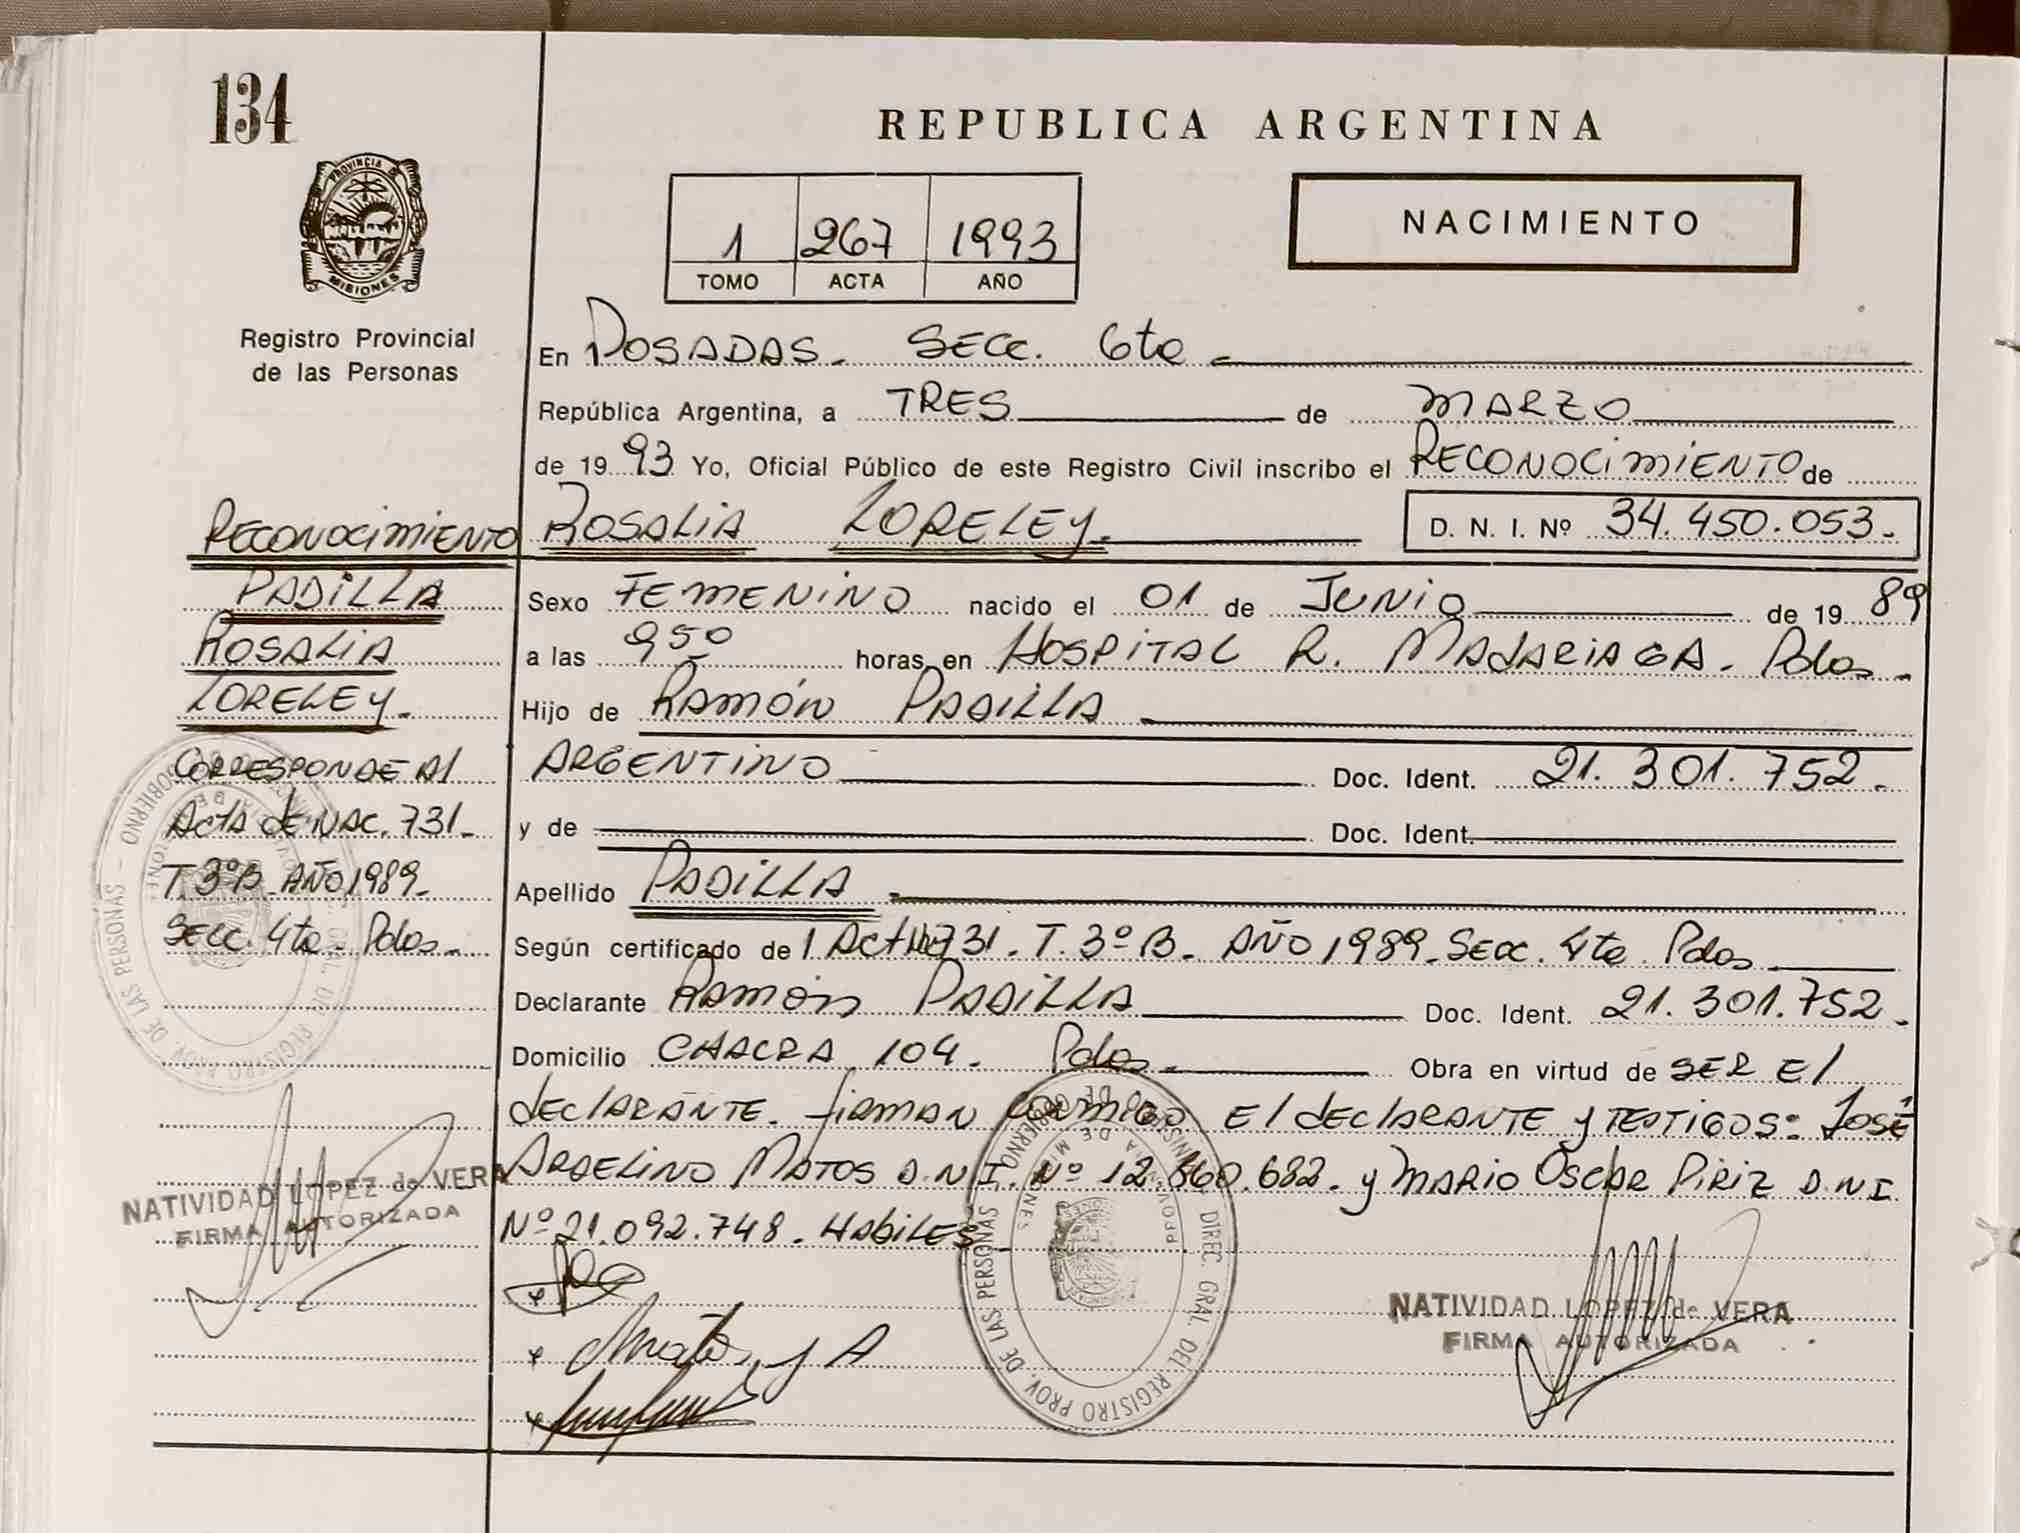 134
REPUBLICA ARGENTINA
PROVINCIA DE
MISIONES
Registro Provincial
de las Personas
1 267 1993
TOMO ACTA AÑO
NACIMIENTO
En POSADAS. SECC. 6ta.
República Argentina, a TRES de MARZO
de 1993 Yo, Oficial Público de este Registro Civil inscribo el RECONOCIMIENTO de
ROSALIA LORELEY. D. N. I. Nº 34.450.053.
Sexo FEMENINO nacido el 01 de JUNIO de 1989
a las 9 50 horas en HOSPITAL R. MADARIAGA. Pdas.
Hijo de RAMÓN PADILLA
ARGENTINO Doc. Ident. 21.301.752.
y de Doc. Ident.
Apellido PADILLA.
Según certificado de 1 ACTA 731. T. 3º B. AÑO 1989. SECC. 4ta. Pdas
Declarante RAMÓN PADILLA Doc. Ident. 21.301.752.
Domicilio CHACRA 104. Pdas. Obra en virtud de SER El
declARANTE. firman conmigo El declARANTE y TESTIGOS: JOSÉ
ARGELINO MATOS D.N.I. Nº 12.860.682. y MARIO OSCAR PIRIZ D.N.I.
Nº 21.092.748. HABILES
Matos, J A
NATIVIDAD LOPEZ de VERA
FIRMA AUTORIZADA
RECONOCIMIENTO
PADILLA
ROSALIA
LORELEY.
CORRESPONDE Al
ACTA de NAC. 731.
T. 3º B. AÑO 1989.
SECC. 4ta. Pdas.
NATIVIDAD LOPEZ de VERA
FIRMA AUTORIZADA
DIREC. GRAL. DEL REGISTRO PROV. DE LAS PERSONAS
PROVINCIA DE MISIONES